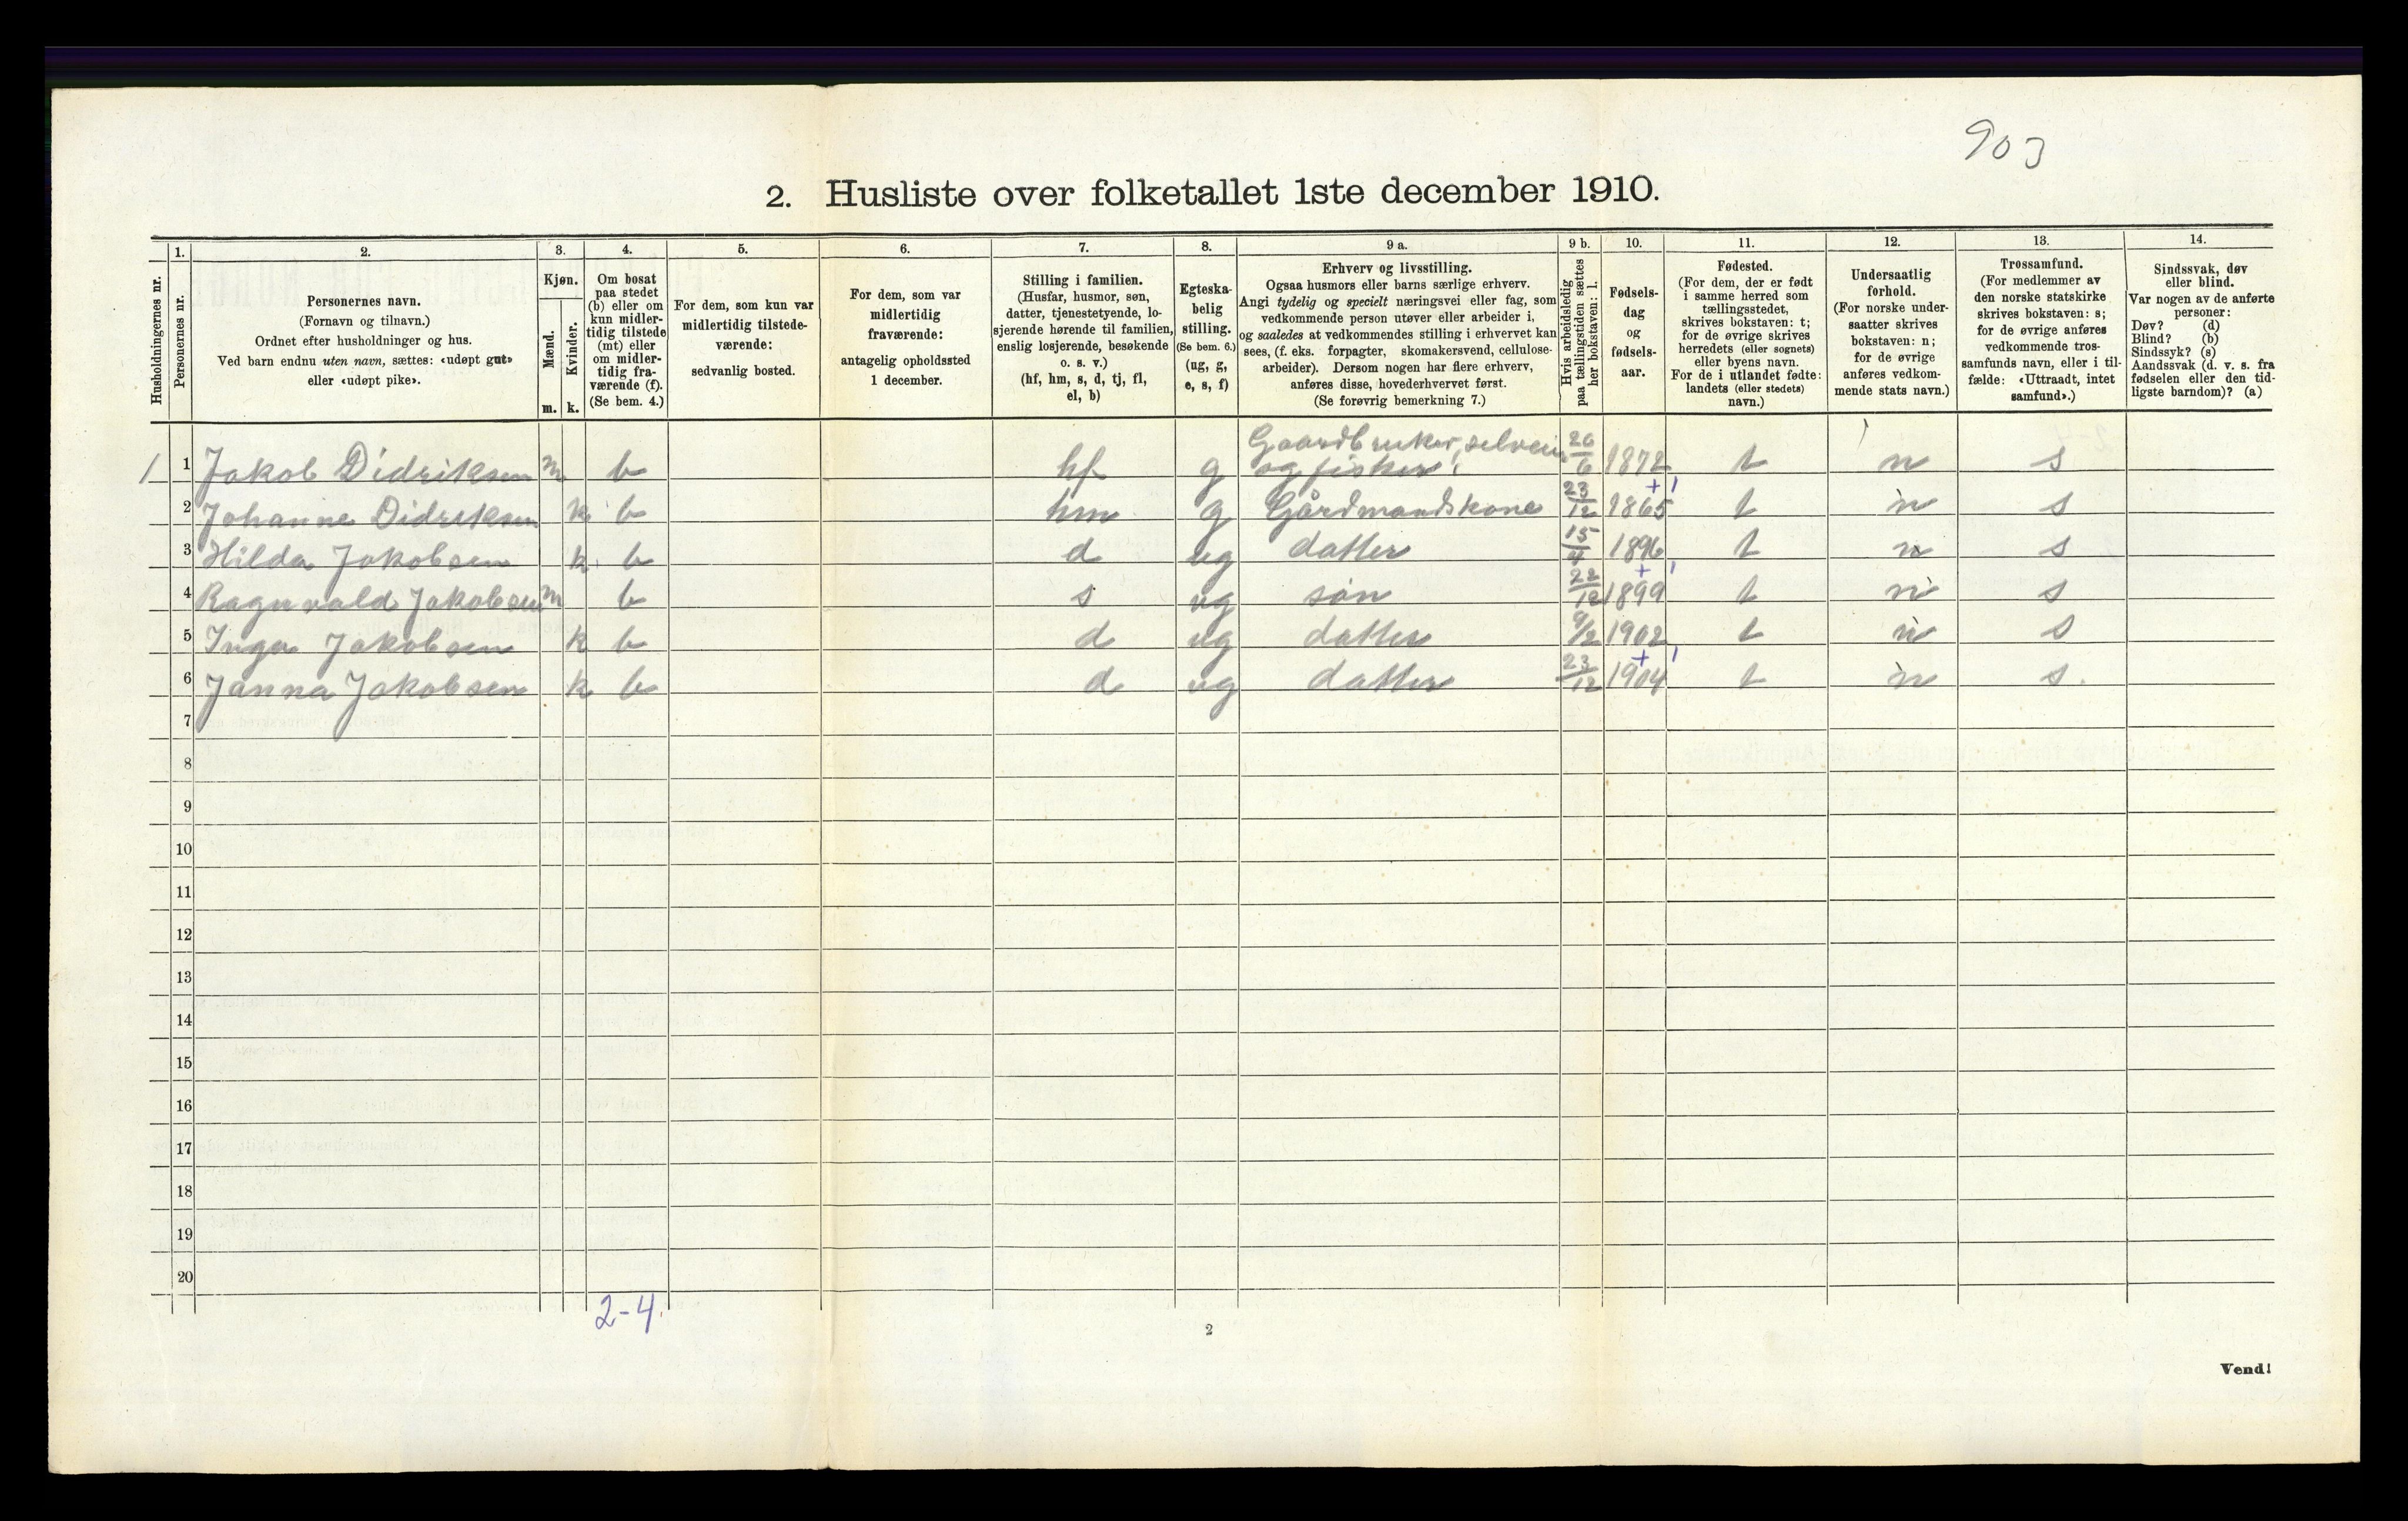 903
2. Husliste over folketallet 1ste december 1910.
Husholdningernes nr.
1.
Personernes nr.
2.
Personernes navn.
(Fornavn og tilnavn.)
Ordnet efter husholdninger og hus.
Ved barn endnu uten navn, sættes: «udøpt gut»
eller «udøpt pike».
3.
Kjøn.
Mænd.
m.
Kvinder.
k.
4.
Om bosat
paa stedet
(b) eller om
kun midler-
tidig tilstede
(mt) eller
om midler-
tidig fra-
værende (f).
(Se bem. 4.)
5.
For dem, som kun var
midlertidig tilstede-
værende:
sedvanlig bosted.
6.
For dem, som var
midlertidig
fraværende:
antagelig opholdssted
1 december.
7.
Stilling i familien.
(Husfar, husmor, søn,
datter, tjenestetyende, lo-
sjerende hørende til familien,
enslig losjerende, besøkende
o. s. v.)
(hf, hm, s, d, tj, fl,
el, b)
8.
Egteska-
belig
stilling.
(Se bem. 6.)
(ug, g,
e, s, f)
9 a.
Erhverv og livsstilling.
Ogsaa husmors eller barns særlige erhverv.
Angi tydelig og specielt næringsvei eller fag, som
vedkommende person utøver eller arbeider i,
og saaledes at vedkommendes stilling i erhvervet kan
sees, (f. eks. forpagter, skomakersvend, cellulose-
arbeider). Dersom nogen har flere erhverv,
anføres disse, hovederhvervet først.
(Se forøvrig bemerkning 7.)
9 b.
Hvis arbeidsledig
paa tællingstiden sættes
her bokstaven: l.
10.
Fødsels-
dag
og
fødsels-
aar.
11.
Fødested.
(For dem, der er født
i samme herred som
tællingsstedet,
skrives bokstaven: t;
for de øvrige skrives
herredets (eller sognets)
eller byens navn.
For de i utlandet fødte:
landets (eller stedets)
navn.)
12.
Undersaatlig
forhold.
(For norske under-
saatter skrives
bokstaven: n;
for de øvrige
anføres vedkom-
mende stats navn.)
13.
Trossamfund.
(For medlemmer av
den norske statskirke
skrives bokstaven: s;
for de øvrige anføres
vedkommende tros-
samfunds navn, eller i til-
fælde: «Uttraadt, intet
samfund».)
14.
Sindssvak, døv
eller blind.
Var nogen av de anførte
personer:
Døv? (d)
Blind? (b)
Sindssyk? (s)
Aandssvak (d. v. s. fra
fødselen eller den tid-
ligste barndom)? (a)
1 1 Jakob Didriksen m b hf g Gaardbruker, selveier og fisker 26/6 1872 t n s
2 Johanne Didriksen k b hm g Gårdmandskone 23/12 1865 t n s
3 Hilda Jakobsen k b d ug datter 15/4 1896 t n s
4 Ragnvald Jakobsen m b s ug søn 22/12 1899 t n s
5 Inga Jakobsen k b d ug datter 9/2 1902 t n s
6 Janna Jakobsen k b d ug datter 23/12 1904 t n s.
7
8
9
10
11
12
13
14
15
16
17
18
19
20
2-4.
2
Vend!